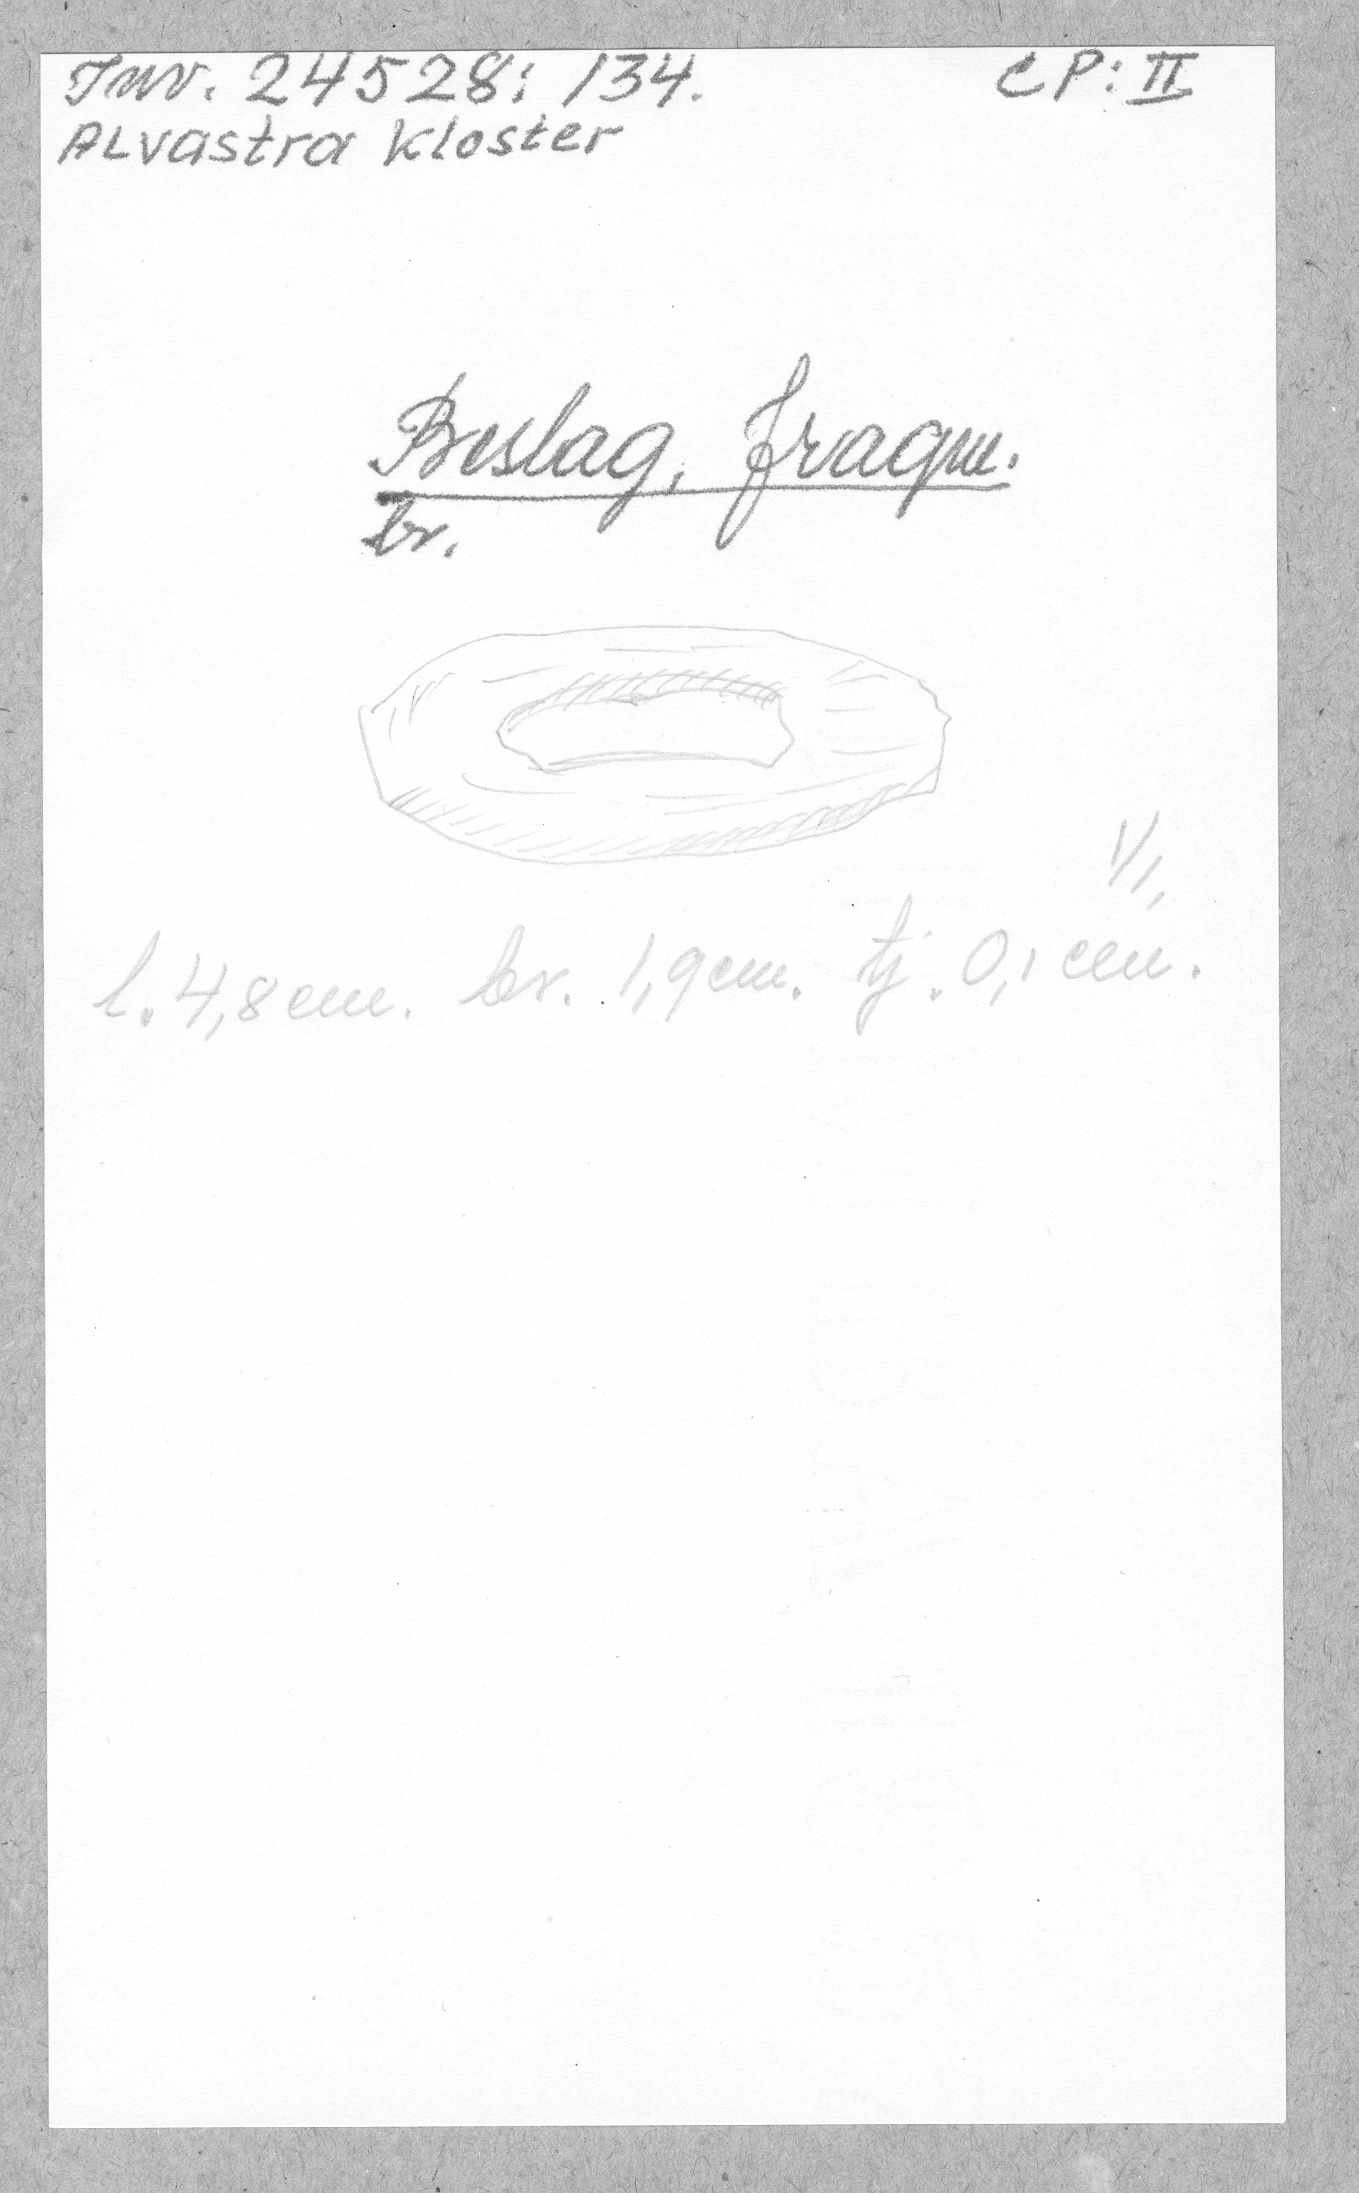 Inv. 24528: 134. CP: II
Alvastra Kloster
Beslag, fragm.
br.
1/1.
l. 4,8 cm. br. 1,9 cm. tj. 0,1 cm.